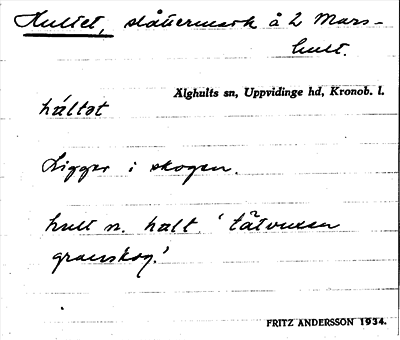 Hultet, slåttermark å 2 Mars-
hult.
Älghults sn, Uppvidinge hd, Kronob. l.
háltət
Ligger i skogen.
hult n. halt. 'tätvuxen
granskog.'
FRITZ ANDERSSON 1934.